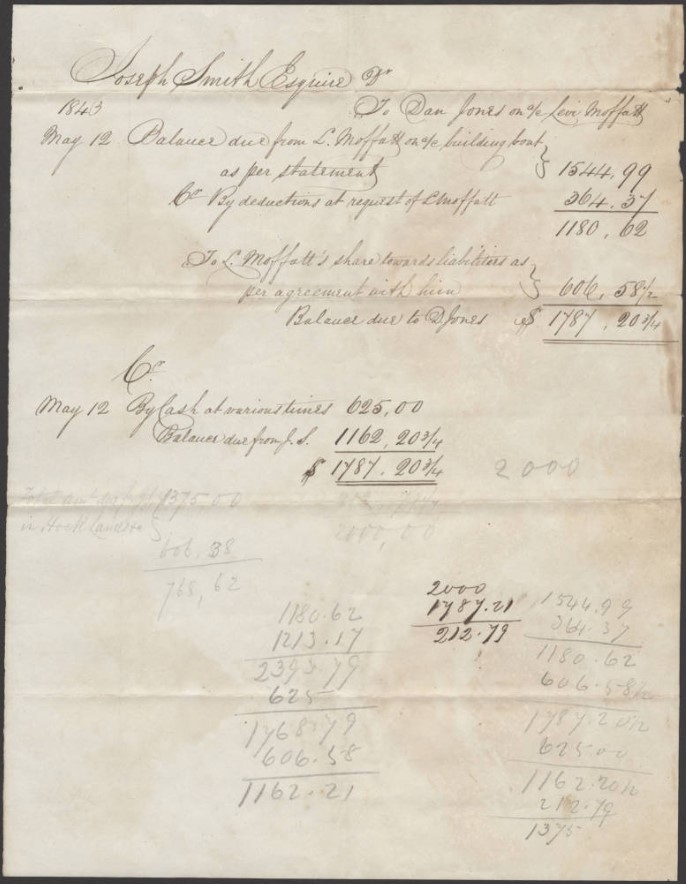 Joseph Smith Esquire Dr
1843 To Dan Jones on a/c Levi Moffatt
May 12 Balance due from L. Moffatt on a/c building boat
as per statement } 1544,99
Cr By deductions at request of L Moffatt 364.37
1180,62
To L. Moffatt's share towards liabilities as
per agreement with him } 606,58 1/2
Balance due to D Jones $ 1787,20 3/4
Cr
May 12 By Cash at various times 625,00
Balance due from J. S. 1162,20 3/4
$ 1787.20 3/4
2000
1375.00
in
2000,00
606.38
768,62
2000
1787.21
212.79
1180.62
1213.17
2393.79
625
1768.79
606.58
1162.21
1544.99
364.37
1180.62
606.58 1/2
1787.20 1/2
625.00
1162.20 1/2
212.79
1375